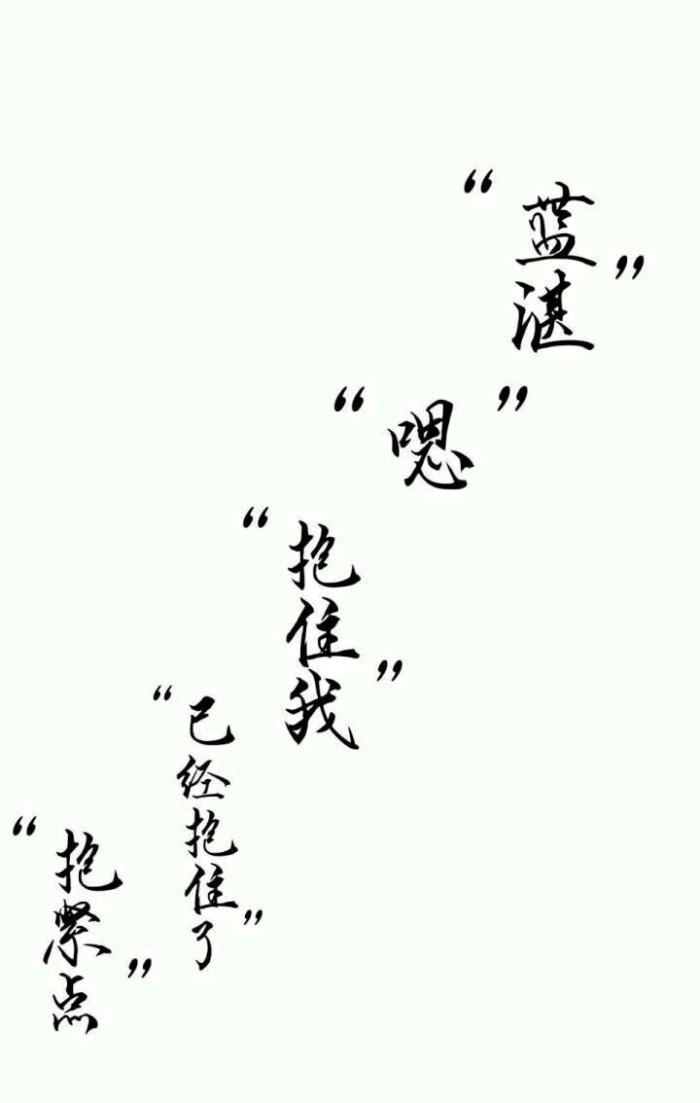 “蓝湛”
“嗯”
“抱住我”
“已经抱住了”
“抱紧点”